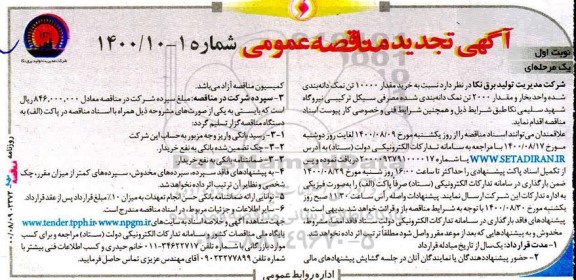 آگهی تجدید مناقصه عمومی شماره ۱-۱۴۰۰/۱۰
نوبت اول
یک مرحله‌ای
شرکت مدیریت تولید برق نکا
شرکت مدیریت تولید برق نکا در نظر دارد نسبت به خرید مقدار ۱۰۰۰۰ تن نمک دانه‌بندی
شده واحد بخار و مقدار ۲۰۰۰ تن نمک دانه‌بندی شده مصرفی سیکل ترکیبی نیروگاه
شهید سلیمی نکا طبق شرایط ذیل و همچنین شرایط فنی و خصوصی کار پیوست اسناد
مناقصه اقدام نماید.
علاقمندان می توانند اسناد مناقصه را از روز یکشنبه مورخ ۱۴۰۰/۰۸/۰۹ لغایت روز دوشنبه
مورخ ۱۴۰۰/۰۸/۱۷ با مراجعه به سامانه تدارکات الکترونیکی دولت (ستاد) به آدرس
WWW.SETADIRAN.IR با شماره دریافت نموده و پس
از تکمیل اسناد پاکت پیشنهادی را حداکثر تا ساعت ۱۶:۰۰ روز شنبه مورخ ۱۴۰۰/۰۸/۲۹
ضمن بارگذاری در سامانه تدارکات الکترونیکی (ستاد) صرفا پاکت (الف) را بصورت فیزیکی
به اداره تدارکات این شرکت ارسال نمایند. پیشنهادات واصله رأس ساعت ۱۱:۳۰ صبح روز
یکشنبه مورخ ۱۴۰۰/۰۸/۳۰ با توجه به شرایط مناقصه باز و قرائت خواهد شد. بدیهی است به
پیشنهادهای فاقد بارگذاری در سامانه تدارکات الکترونیکی دولت ستاد، فاقد امضا، مشروط،
مخدوش و به پیشنهادهایی که بعد از موعد مقرر واصل شود مطلقاً ترتیب اثر داده نخواهد شد.
۱- مدت قرارداد: یک سال از تاریخ مبادله قرارداد
۲- حضور پیشنهاددهندگان یا نمایندگان آنان در جلسه گشایش پیشنهادهای مالی
کمیسیون مناقصه آزاد می‌باشد.
۳- سپرده شرکت در مناقصه: مبلغ سپرده شرکت در مناقصه معادل ۸۴۶,۰۰۰,۰۰۰ ریال
است که بایستی به یکی از صورت‌های مشروحه ذیل همراه با اسناد مناقصه در پاکت (الف) به
دستگاه مناقصه گزار تسلیم گردد:
۱-۳- رسید بانکی واریز وجه مزبور به حساب این شرکت
۲-۳- چک تضمین شده بانکی به نفع خریدار.
۳-۳- ضمانتنامه بانکی به نفع خریدار.
۴- به پیشنهادهای فاقد سپرده، سپرده‌های مخدوش، سپرده‌های کمتر از میزان مقرر، چک
شخصی و نظایر آن ترتیب اثر داده نخواهد شد.
۵- توانایی ارائه ضمانتنامه بانکی حسن انجام تعهدات به میزان ۱۰٪ مبلغ قرارداد پس از عقد قرارداد
۶- سایر اطلاعات و جزئیات مربوط، در اسناد مناقصه مندرج است.
www.tender.tpph.ir www.npgm.ir
پایگاه ملی مناقصات کشور و سامانه تدارکات الکترونیکی دولت (ستاد) مراجعه و برای کسب
موارد بازرگانی با شماره تلفن ۳۴۶۲۲۷۱۷-۰۱۱ خانم حیدری و کسب اطلاعات فنی بیشتر با
شماره تلفن ۰۹۰۲۳۲۷۷۸۹۹ آقای مهندس عزیزی تماس حاصل فرمایید.
اداره روابط عمومی